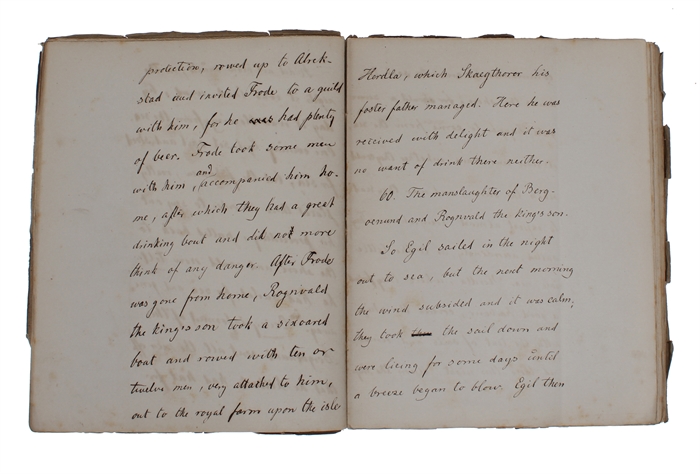 protection, rowed up to Alrek-
stad and invited Frode to a guild
with him, for he was had plenty
of beer. Frode took some men
and
with him, accompanied him ho-
me, after which they had a great
drinking bout and did not more
think of any danger. After Frode
was gone from home, Rognvald
the kings son took a sixoared
boat and rowed with ten or
twelve men, very attached to him,
out to the royal farm upon the isle
Herdla, which Skaegthoror his
foster father managed. Here he was
received with delight and it was
no want of drink there neither.
60. The manslaughter of Berg-
oenund and Rognvald the king's son.
So Egil sailed in the night
out to sea, but the next morning
the wind subsided and it was calm;
they took the sail down and
were lying for some days until
a breeze began to blow. Egil then